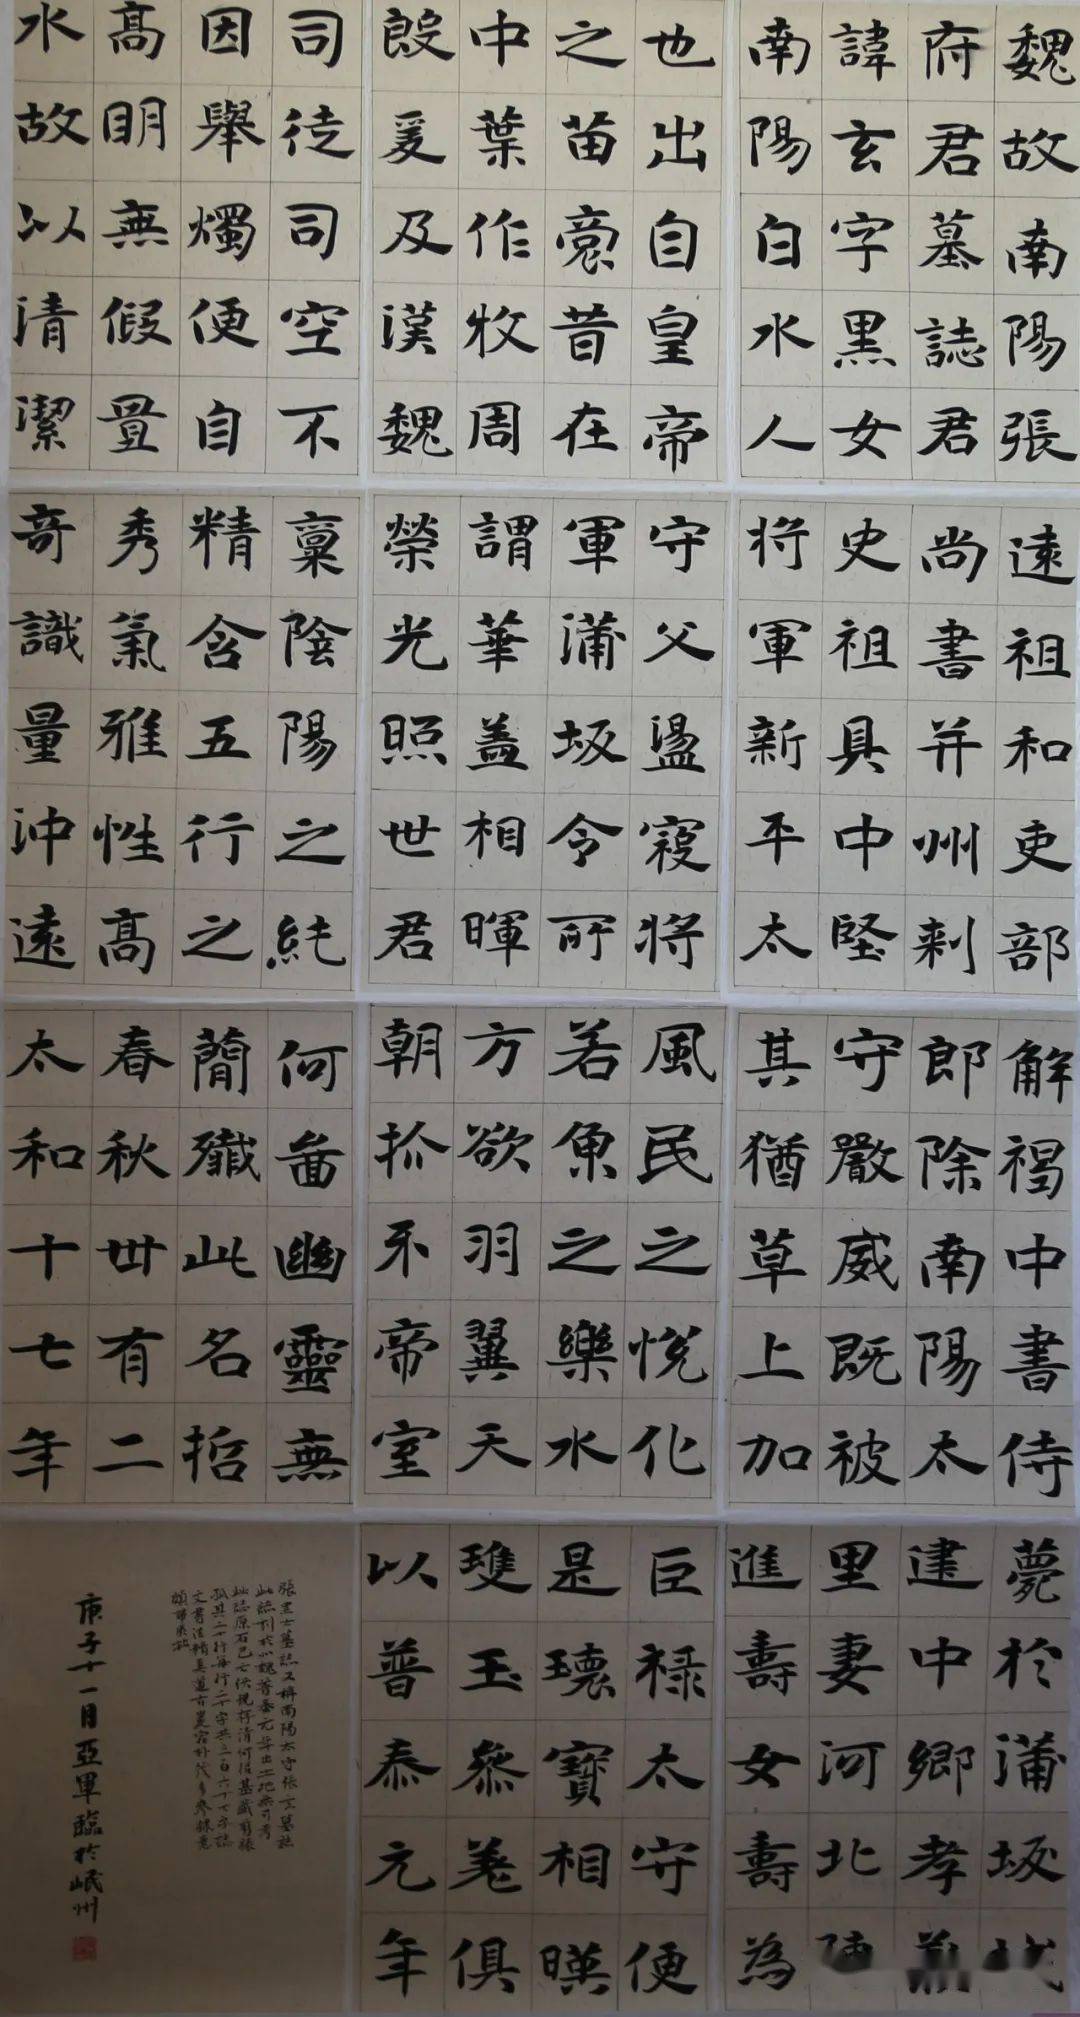 魏故南陽張
府君墓誌君
諱玄字黑女
南陽白水人
也出自皇帝
之苗裔昔在
中葉作牧周
殷爰及漢魏
司徒司空不
因舉燭便自
高明無假置
水故以清潔
遠祖和吏部
尚書并州刺
史祖具中堅
将軍新平太
守父盪寇将
軍蒲坂令所
謂華盖相暉
榮光照世君
稟陰陽之純
精含五行之
秀氣雅性高
奇識量沖遠
解褐中書侍
郎除南陽太
守嚴威既被
其猶草上加
風民之悅化
若魚之樂水
方欲羽翼天
朝抓牙帝室
何啚幽靈無
簡殲此名哲
春秋卅有二
太和十七年
薨於蒲坂
建中鄉孝
里妻河北
進壽女壽為
巨祿太守便
是瓌寶相暎
瓊玉參差俱
以普泰元年
張黑女墓誌又稱南陽太守張玄墓誌
此誌刊於北魏普泰元年出土地無可考
此誌原石已亡佚現存清何紹基藏剪裱
二十行每行二十字共三百六十七字誌
文書法精美遒古
庚子十一月亞軍臨於岷州